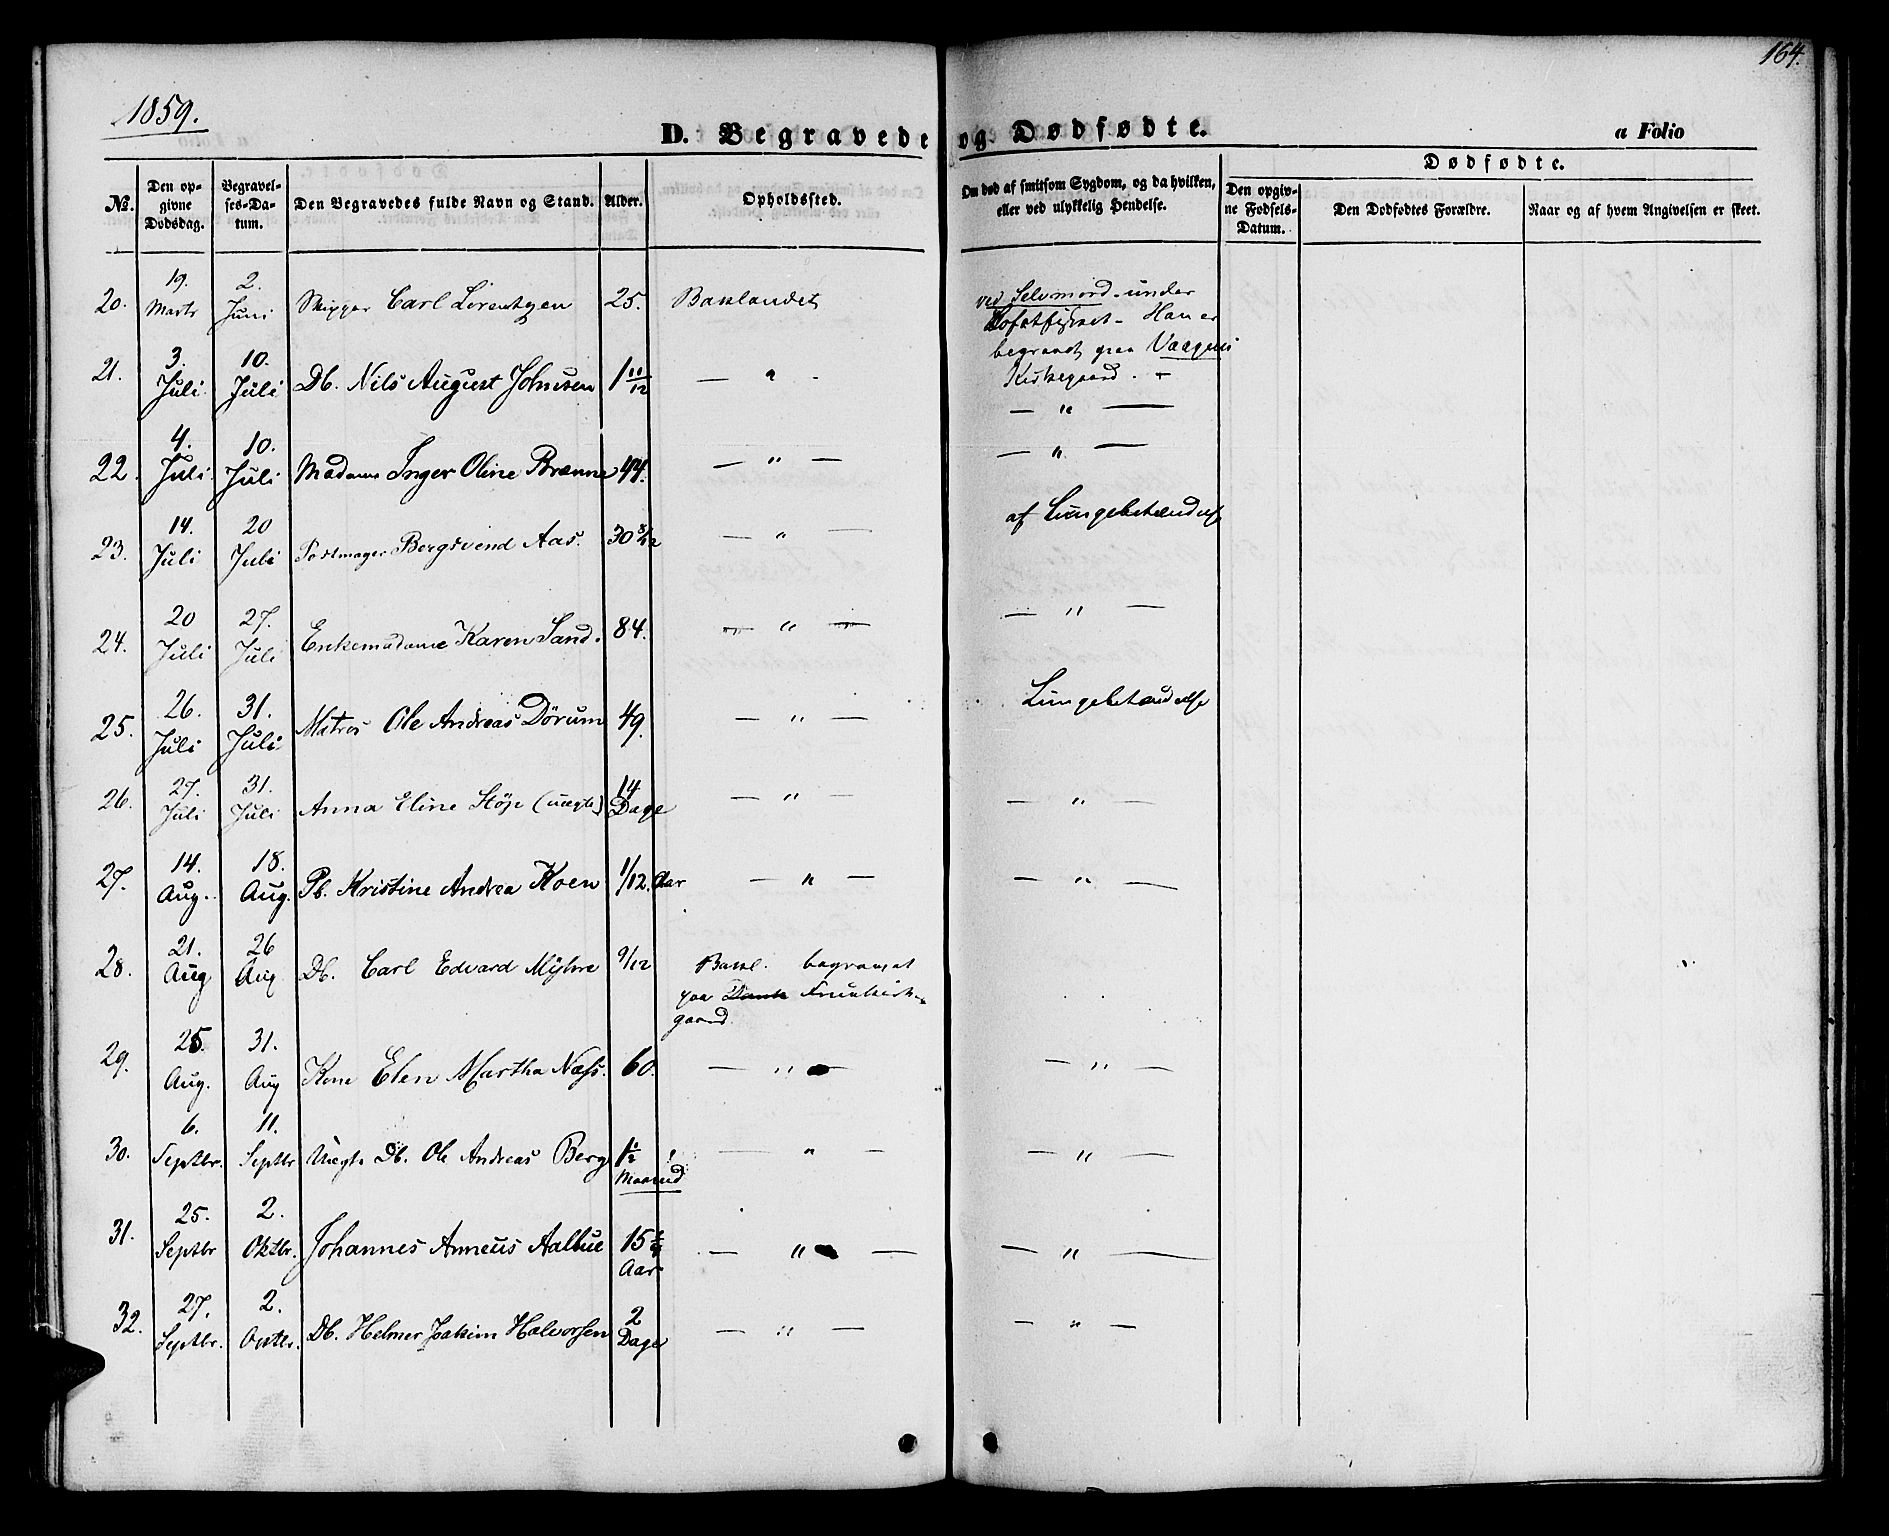 164.
1859.
D. Begravede og Dødfødte.
a Folio
No.
Den opgivne Dødsdag.
Begravelses-Datum.
Den Begravedes fulde Navn og Stand.
Alder.
Opholdssted.
Om død af smitsom Sygdom, og da hvilken, eller ved ulykkelig Hendelse.
Dødfødte.
Den opgivne Fødsels-Datum.
Den Dødfødtes Forældre.
Naar og af hvem Angivelsen er skeet.
20. 19. Marts 2. Juni Skipper Carl Lorentzen 25. Baklandet ved Selvmord under
Lofotfisket - Han er
begravet paa Vaagens
Kirkegaard. -
21. 3. Juli 10. Juli Db. Nils August Johnsen 1 11/12 — " - — " —
22. 4. Juli. 10. Juli Madame Inger Oline Brænne 44. — " — — " —
23. 14. Juli 20 Juli Bergsvend Aas. 30 8/12 — " — af Lungebetændelse
24. 20 Juli 27. Juli Enkemadame Karen Sand. 84. — " — — " —
25. 26. Juli 31. Juli Matros Ole Andreas Dørum 49. — " — Lungebetændelse
26. 27. Juli 31. Juli Anna Eline Støp (uægte) 14 Dage — " — — " —
27. 14. Aug. 18. Aug. Pb. Kristine Andrea Koen 1/12. Aar — " — — " —
28. 21. Aug 26 Aug Db. Carl Edvard Myhre 9/12 Bakl. begravet
paa Fruekirke-
gaard.
29. 25. Aug. 31. Aug Kone Elen Martha Næss. 60. — " — — " —
30. 6. Septbr. 11. Septbr Uægte Db. Ole Andreas Berg 1 1/2 Maaned — " — — " —
31. 25. Septbr 2. Oktbr. Johannes Anneus Aalbue 15 3/4 Aar — " — — " —
32. 27. Septbr. 2. Octbr. Db. Helmer Joakim Halvorsen 2 Dage — " — — " —